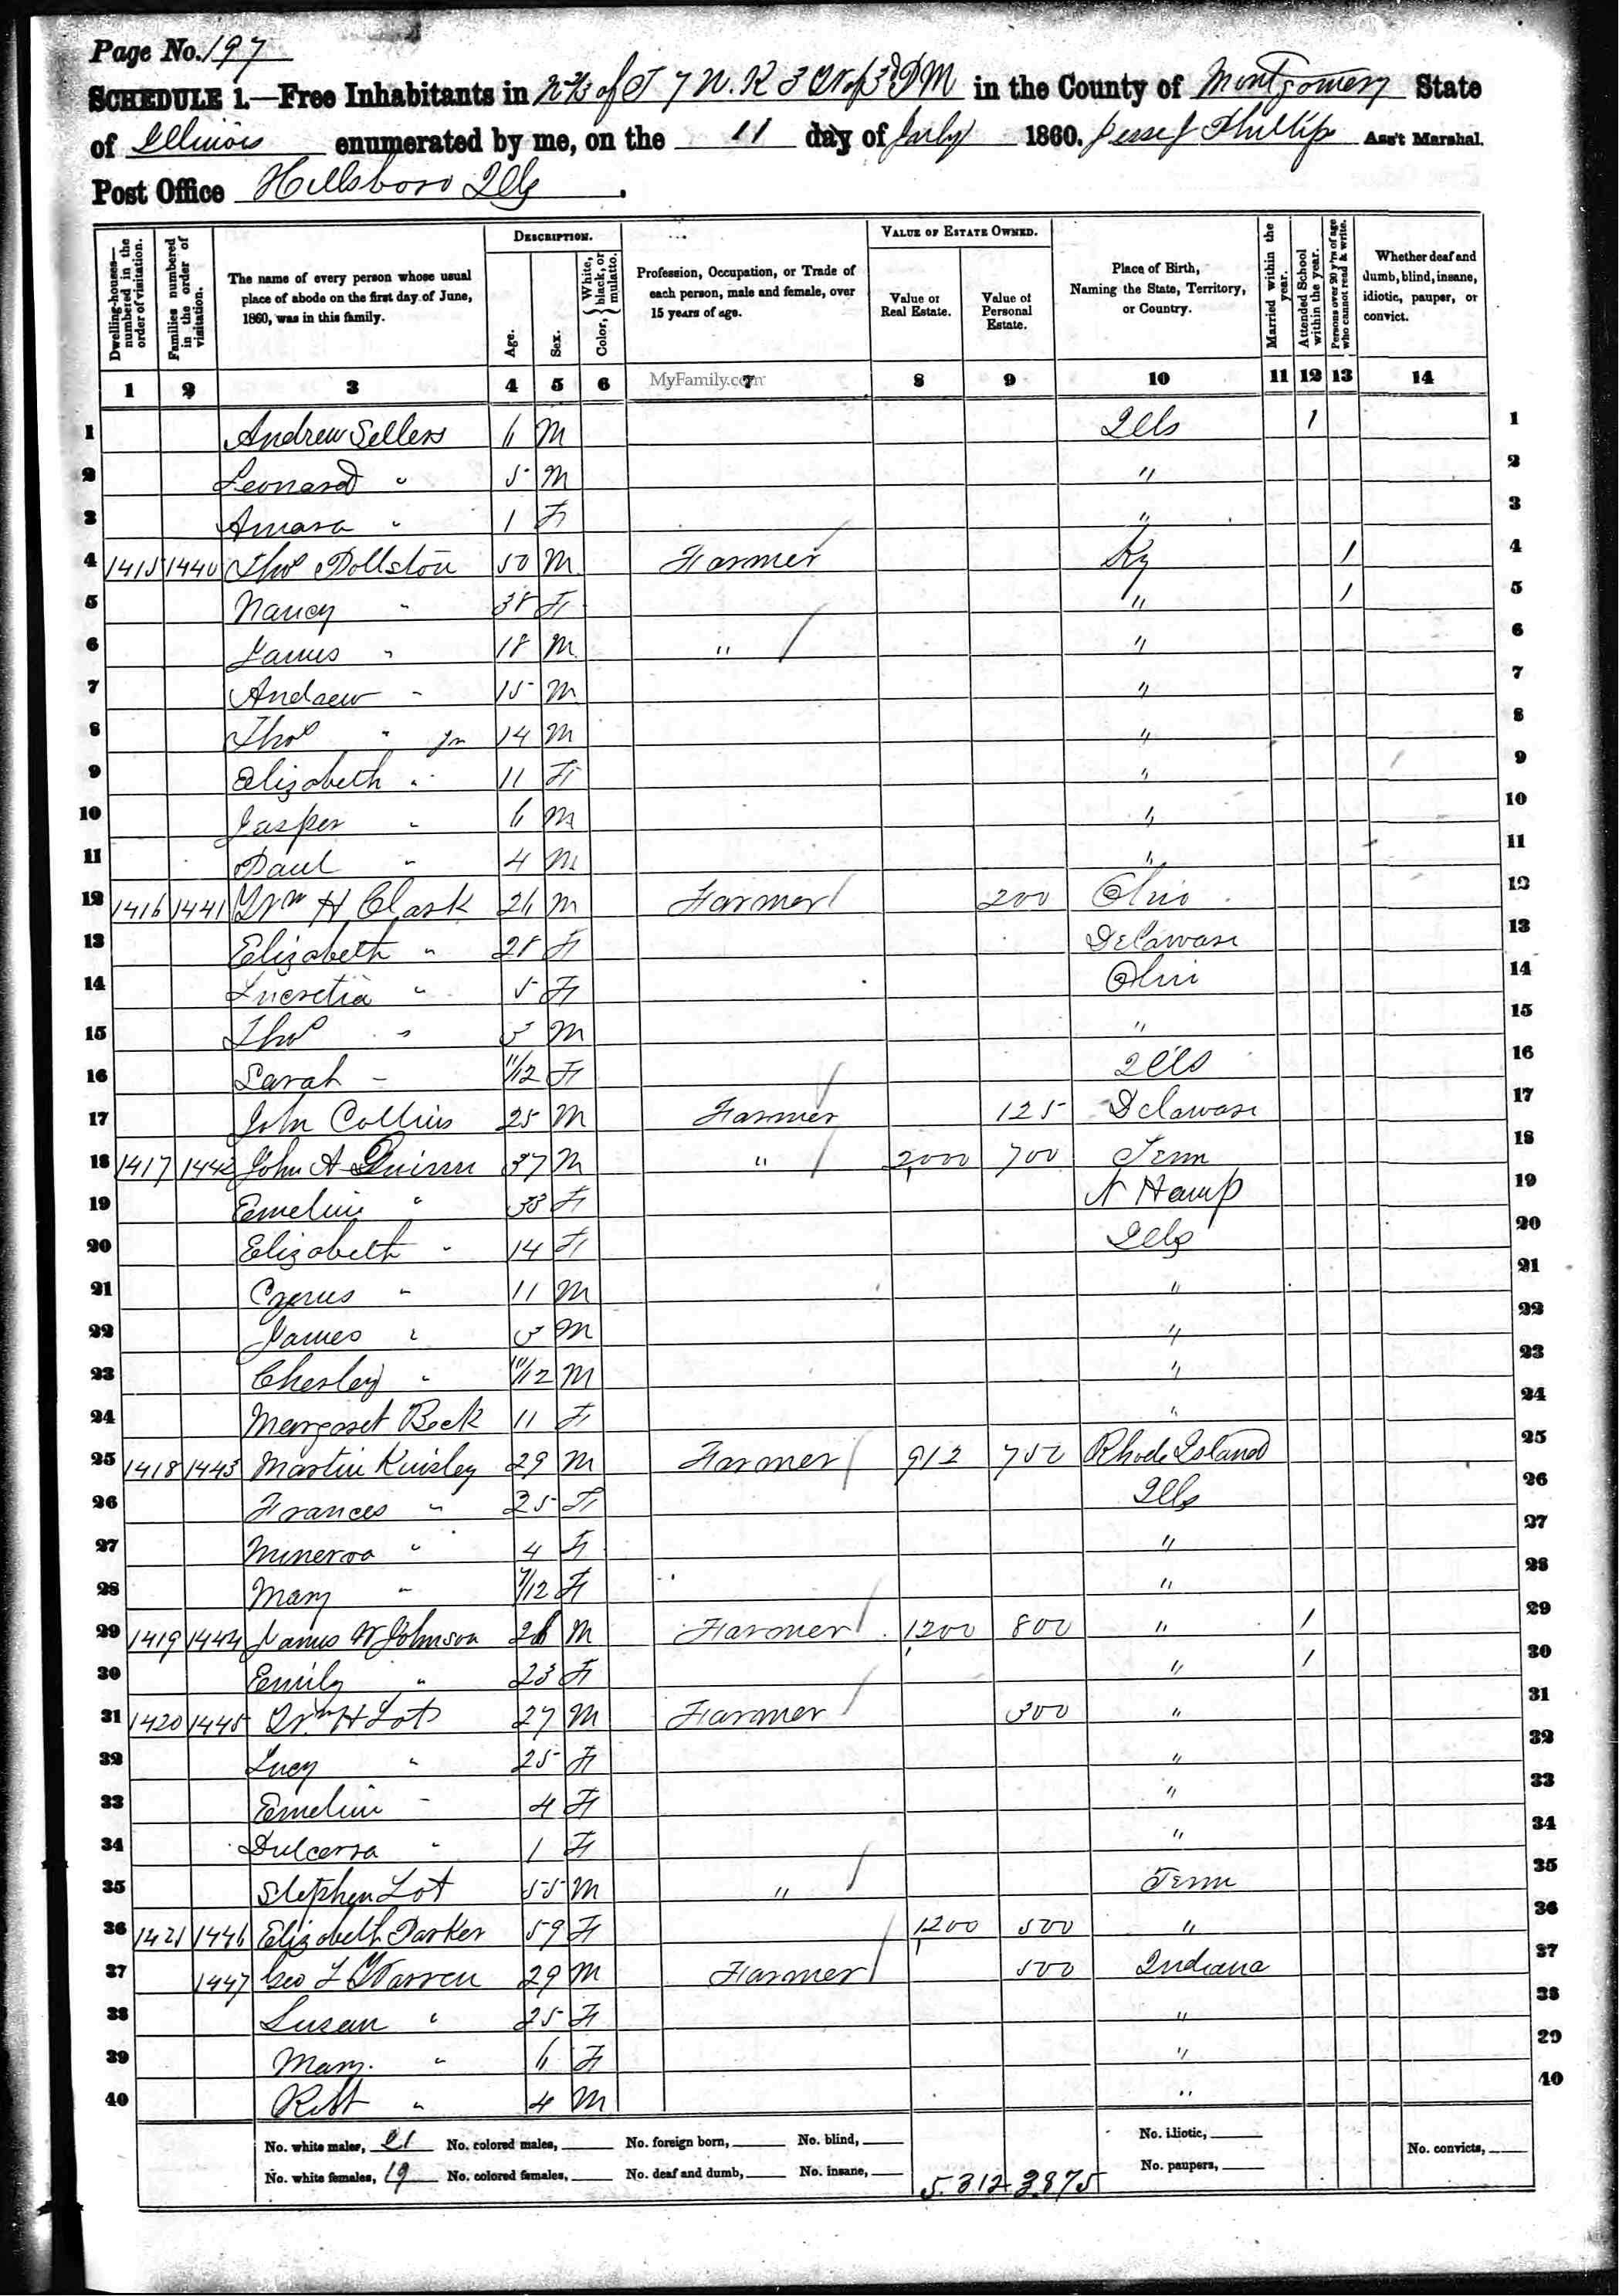 Page No. 197
SCHEDULE 1.—Free Inhabitants in T 7 N. R 3 W of 3 PM in the County of Montgomery State
of Illinois enumerated by me, on the 11 day of July 1860. Jesse J Phillips Ass't Marshal.
Post Office Hillsboro Ills.
DESCRIPTION. VALUE OF ESTATE OWNED.
Dwelling-houses—numbered in the order of visitation. Families numbered in the order of visitation. The name of every person whose usual place of abode on the first day of June, 1860, was in this family. Age. Sex. Color, White, black, or mulatto. Profession, Occupation, or Trade of each person, male and female, over 15 years of age. Value of Real Estate. Value of Personal Estate. Place of Birth, Naming the State, Territory, or Country. Married within the year. Attended School within the year. Persons over 20 y'rs of age who cannot read & write. Whether deaf and dumb, blind, insane, idiotic, pauper, or convict.
1 2 3 4 5 6 MyFamily.com 7 8 9 10 11 12 13 14
1 Andrew Sellers 6 M Ills 1 1
2 Leonard " 5 M " 2
3 Amasa " 1 F " 3
4 1415 1440 Thos Pollston 50 M Farmer Ky 1 4
5 Nancy " 38 F " 1 5
6 James " 18 M " " 6
7 Andrew " 15 M " 7
8 Thos " Jn 14 M " 8
9 Elizabeth " 11 F " 9
10 Jasper " 6 M " 10
11 Paul " 4 M " 11
12 1416 1441 Wm H Clark 26 M Farmer 200 Ohio 12
13 Elizabeth " 28 F Delaware 13
14 Lucretia " 5 F Ohio 14
15 Thos " 3 M " 15
16 Sarah " 11/12 F Ills 16
17 John Collins 25 M Farmer 125 Delaware 17
18 1417 1442 John A Quinn 37 M " 2,000 700 Tenn 18
19 Emeline " 33 F N Hamp 19
20 Elizabeth " 14 F Ills 20
21 Cyrus " 11 M " 21
22 James " 3 M " 22
23 Chesley " 10/12 M " 23
24 Margaret Beck 11 F " 24
25 1418 1443 Martin Kinsley 29 M Farmer 912 750 Rhode Island 25
26 Frances " 25 F Ills 26
27 Minerva " 4 F " 27
28 Mary " /12 F " 28
29 1419 1444 James W Johnson M Farmer 1,200 800 " 1 29
30 Emily " 23 F " 1 30
31 1420 1445 Wm H Lot 27 M Farmer 300 " 31
32 Lucy " 25 F " 32
33 Emeline " 4 F " 33
34 Dulcerra " 1 F " 34
35 Stephen Lot 55 M " Tenn 35
36 1421 1446 Elizabeth Parker 59 F 1,200 500 " 36
37 1447 Geo L Warren 29 M Farmer 500 Indiana 37
38 Susan " 25 F " 38
39 Mary " 6 F " 29
40 Robt " 4 M " 40
No. white males, 21 No. colored males, No. foreign born, No. blind, No. idiotic, No. convicts,
No. white females, 19 No. colored females, No. deaf and dumb, No. insane, 5.312 3.875 No. paupers,